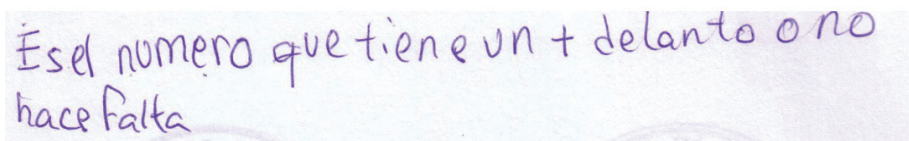 Es el numero que tiene un + delanto o no
hace falta